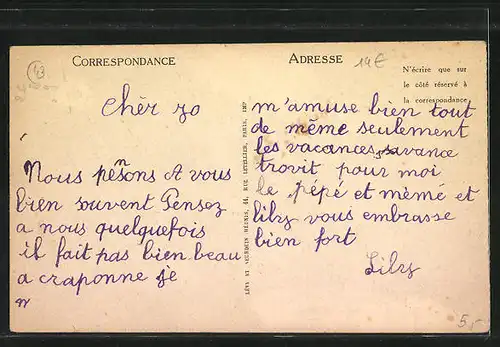 CORRESPONDANCE
chèr zo
Nous pensons A vous
bien souvent Pensez
a nous quelquefois
il fait pas bien beau
a craponne je
m
ADRESSE
14€
N'écrire que sur
le côté réservé à
la correspondance
m'amuse bien tout
de même seulement
les vacances avance
trovit pour moi
le pépé et mèmé et
lily vous embrasse
bien fort
Lily
LÉVY ET NEURDEIN RÉUNIS, 44, RUE LETELLIER, PARIS, IMP
43
5,-